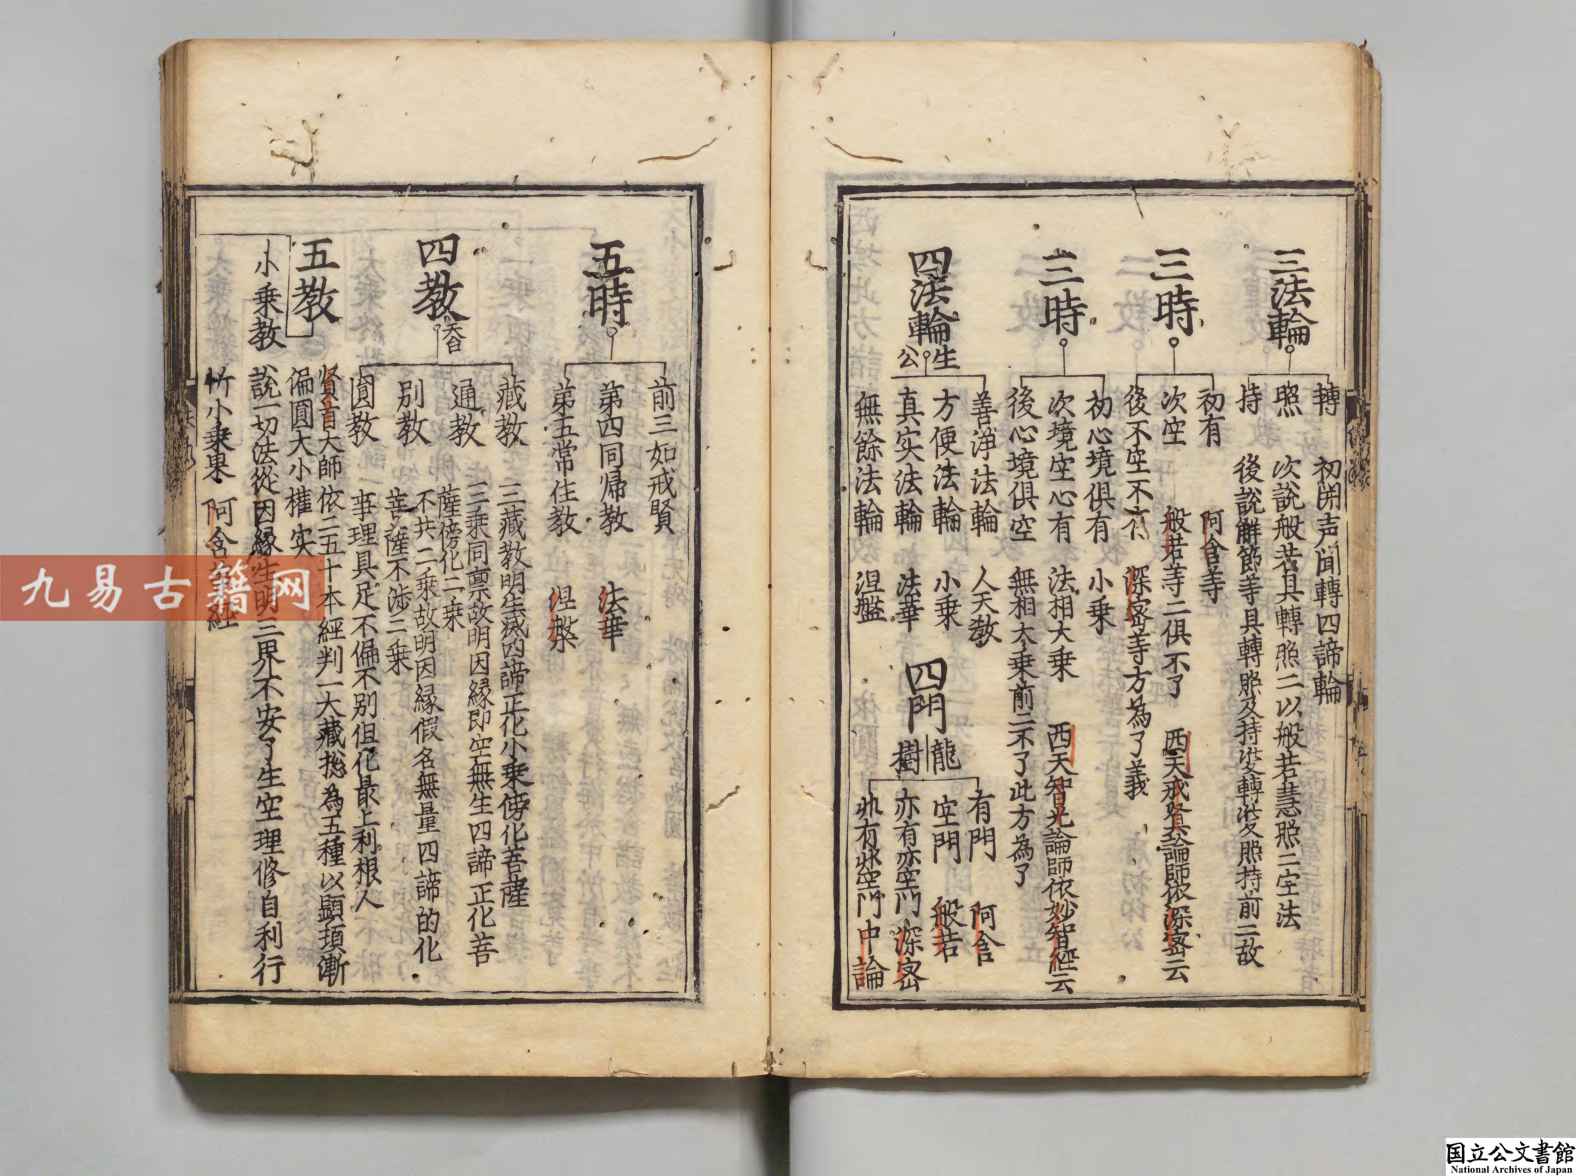 三法輪
轉　初開声聞轉四諦輪
照　次説般若具轉照二以般若慧照二空法
持　後説解節等具轉照及持後轉後照持前二故
三時
初有　阿含等
次空　般若等二俱不了　西天戒賢論師依深密云
後不空不有　深密等方為了義
三時
初心境俱有　小乗
次境空心有　法相大乗　西天智光論師依妙智経云
後心境俱空　無相大乗前二不了此方為了
四法輪
生公
善浄法輪　人天教
方便法輪　小乗
真实法輪　法華
無餘法輪　涅槃
四門
龍樹
有門　阿含
空門　般若
亦有亦空門　深密
非有非空門　中論
五時
前三如戒賢
第四同帰教　法華
第五常住教　涅槃
四教
天台
藏教　三藏教明生滅四諦正化小乗傍化菩薩
通教　三乗同禀故明因縁即空無生四諦正化菩
薩傍化二乗
別教　不共二乗故明因縁假名無量四諦的化
菩薩不渉二乗
圓教　事理具足不偏不別但化最上利根人
五教
賢首大師依二五十本經判一大藏揔為五種以顯頓漸
偏圓大小權实
小乗教　説一切法從因縁生明三界不安了生空理修自利行
忻小乗果　阿含等經
九易古籍网
国立公文書館
National Archives of Japan